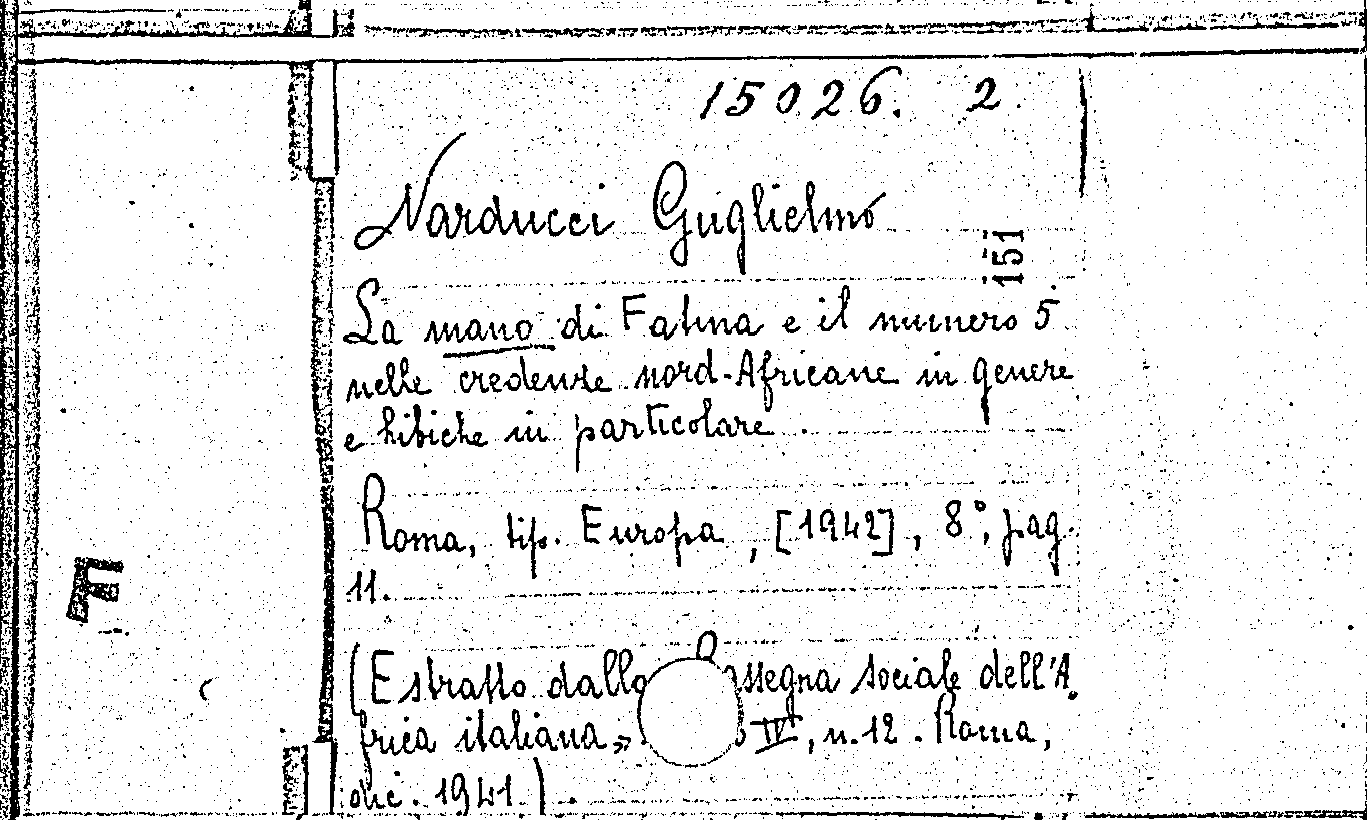 15026. 2
Narducci Guglielmo
151
La mano di Fatma e il numero 5
nelle credenze nord-Africane in genere
e libiche in particolare.
Roma, tip. Europa, [1942], 8°, pag.
11.
F
(Estratto dalla Rassegna sociale dell'A
frica italiana» IV, n. 12. Roma,
dic. 1941)